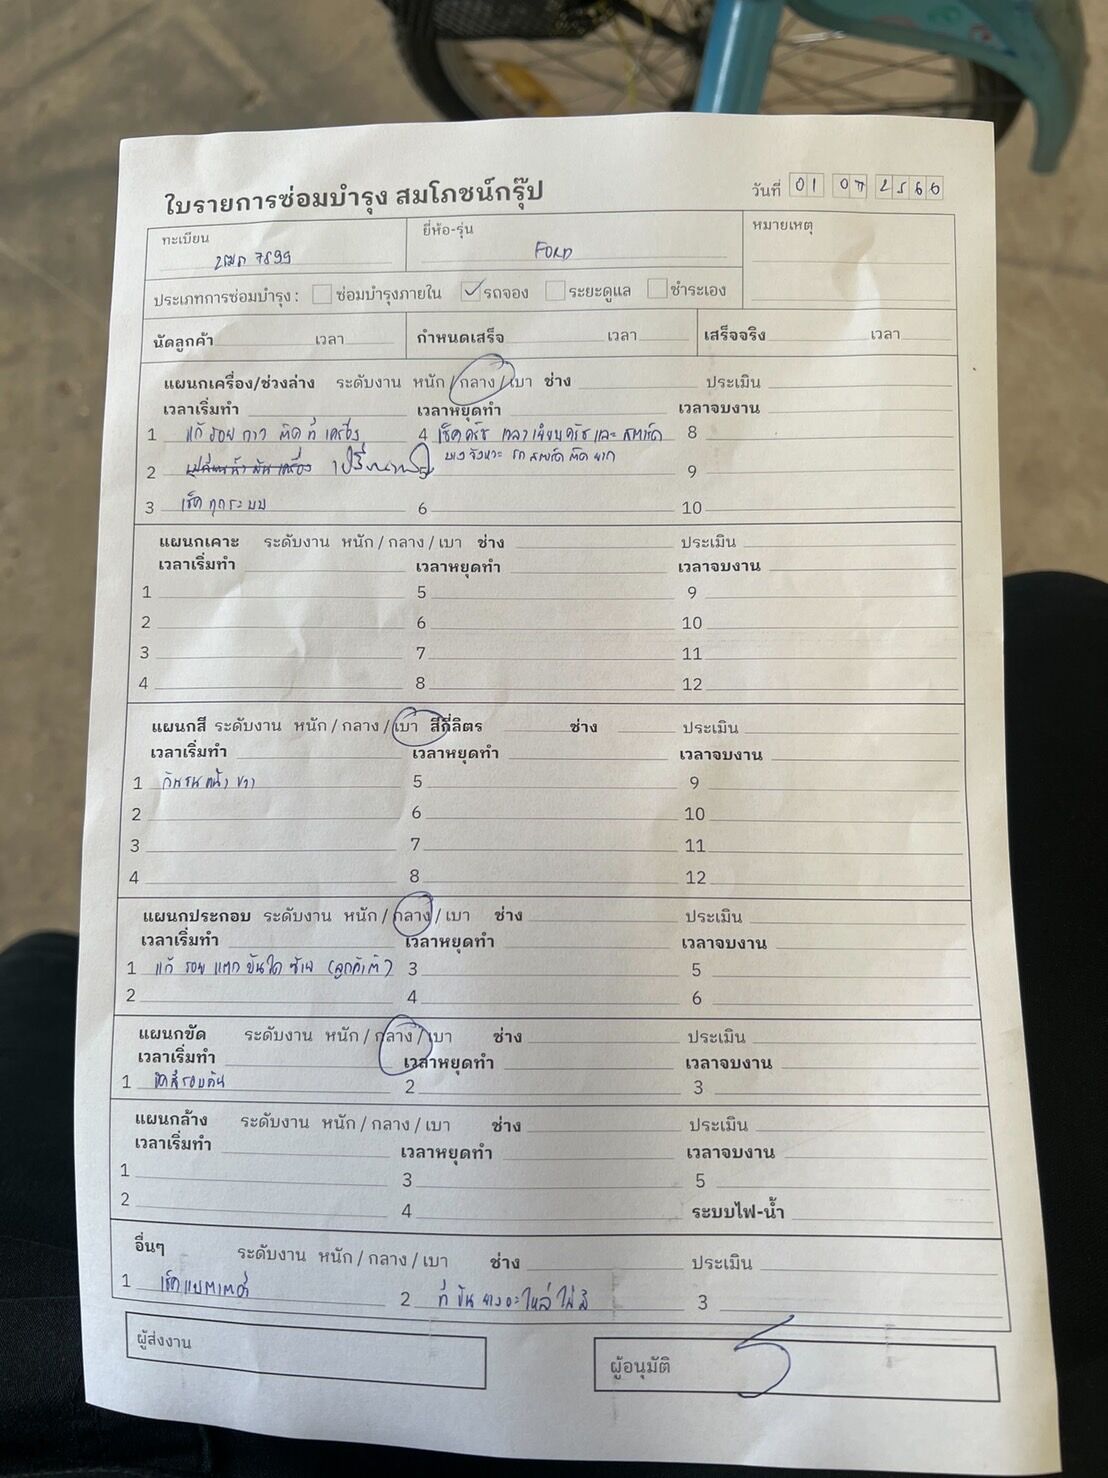 ใบรายการซ่อมบำรุง สมโภชน์กรุ๊ป
วันที่ 01 07 2566
ทะเบียน 7899
ยี่ห้อ-รุ่น FORD
หมายเหตุ
ประเภทการซ่อมบำรุง : ซ่อมบำรุงภายใน ✓ รถจอง ระยะดูแล ชำระเอง
นัดลูกค้า เวลา กำหนดเสร็จ เวลา เสร็จจริง เวลา
แผนกเครื่อง/ช่วงล่าง ระดับงาน หนัก / กลาง / เบา ช่าง ประเมิน
เวลาเริ่มทำ เวลาหยุดทำ เวลาจบงาน
1 แก้ รอย กาว ติด ที่ เครื่อง 4 เช็ค ครัช และ สตาร์ท 8
บางจังหวะ รถ สตาร์ท ติด ยาก
2 เปลี่ยนถ่ายน้ำมันเครื่อง 5 9
3 เช็คทุกระบบ 6 10
แผนกเคาะ ระดับงาน หนัก / กลาง / เบา ช่าง ประเมิน
เวลาเริ่มทำ เวลาหยุดทำ เวลาจบงาน
1 5 9
2 6 10
3 7 11
4 8 12
แผนกสี ระดับงาน หนัก / กลาง / เบา สีกี่ลิตร ช่าง ประเมิน
เวลาเริ่มทำ เวลาหยุดทำ เวลาจบงาน
1 กันชนหน้า ขวา 5 9
2 6 10
3 7 11
4 8 12
แผนกประกอบ ระดับงาน หนัก / กลาง / เบา ช่าง ประเมิน
เวลาเริ่มทำ เวลาหยุดทำ เวลาจบงาน
1 แก้ รอย แตก บันได ซ้าย 3 5
2 4 6
แผนกขัด ระดับงาน หนัก / กลาง / เบา ช่าง ประเมิน
เวลาเริ่มทำ เวลาหยุดทำ เวลาจบงาน
1 ขัดสีรอบคัน 2 3
แผนกล้าง ระดับงาน หนัก / กลาง / เบา ช่าง ประเมิน
เวลาเริ่มทำ เวลาหยุดทำ เวลาจบงาน
1 3 5
2 4 ระบบไฟ-น้ำ
อื่นๆ ระดับงาน หนัก / กลาง / เบา ช่าง ประเมิน
1 เช็คแบตเตอรี่ 2 ที่ ขัน ยางอะไหล่ ไม่มี 3
ผู้ส่งงาน ผู้อนุมัติ